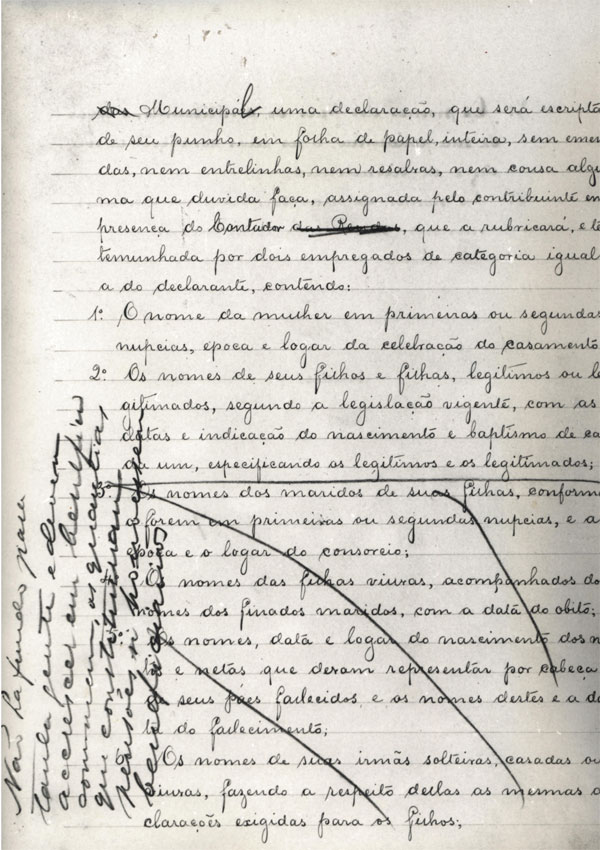 das Municipal, uma declaração, que será escripta
de seu punho, em folha de papel, inteira, sem emen
das, nem entrelinhas, nem resalvas, nem cousa algu
ma que duvida faça, assignada pelo contribuinte em
presença do Contador das Rendas, que a rubricará, e tes
temunhada por dois empregados de categoria igual
a do declarante, contendo:
1º O nome da mulher em primeiras ou segundas
nupcias, epoca e logar da celebração do casamento
2º Os nomes de seus filhos e filhas, legitimos ou le
gitimados, segundo a legislação vigente, com as
datas e indicação do nascimento e baptismo de ca
da um, especificando os legitimos e os legitimados;
3º Os nomes dos maridos de suas filhas, conforme
o forem em primeiras ou segundas nupcias, e a
epoca e o logar do consorcio;
Os nomes das filhas viuvas, acompanhados dos
nomes dos finados maridos, com a data do obito;
Os nomes, data e logar do nascimento dos ne
tos e netas que devam representar por cabeça
de seus paes fallecidos e os nomes destes e a da
ta do fallecimento;
Os nomes de suas irmãs solteiras, casadas ou
viuvas, fazendo a respeito dellas as mesmas de
clarações exigidas para os filhos;
Não ha fundo para
tanta gente e devem
accrescer em beneficio
commum, as quantias,
que constituiriam
pensões si houvessem